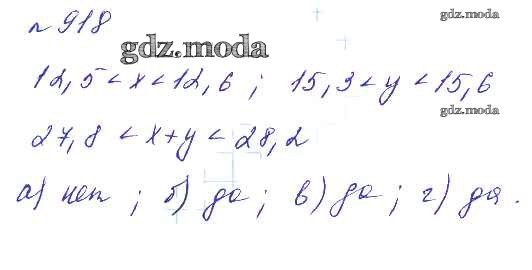 № 918
gdz.moda
gdz.moda
12,5 < x < 12,6 ; 15,3 < y < 15,6
gdz.moda
27,8 < x+y < 28,2
а) нет ; б) да ; в) да ; г) да .